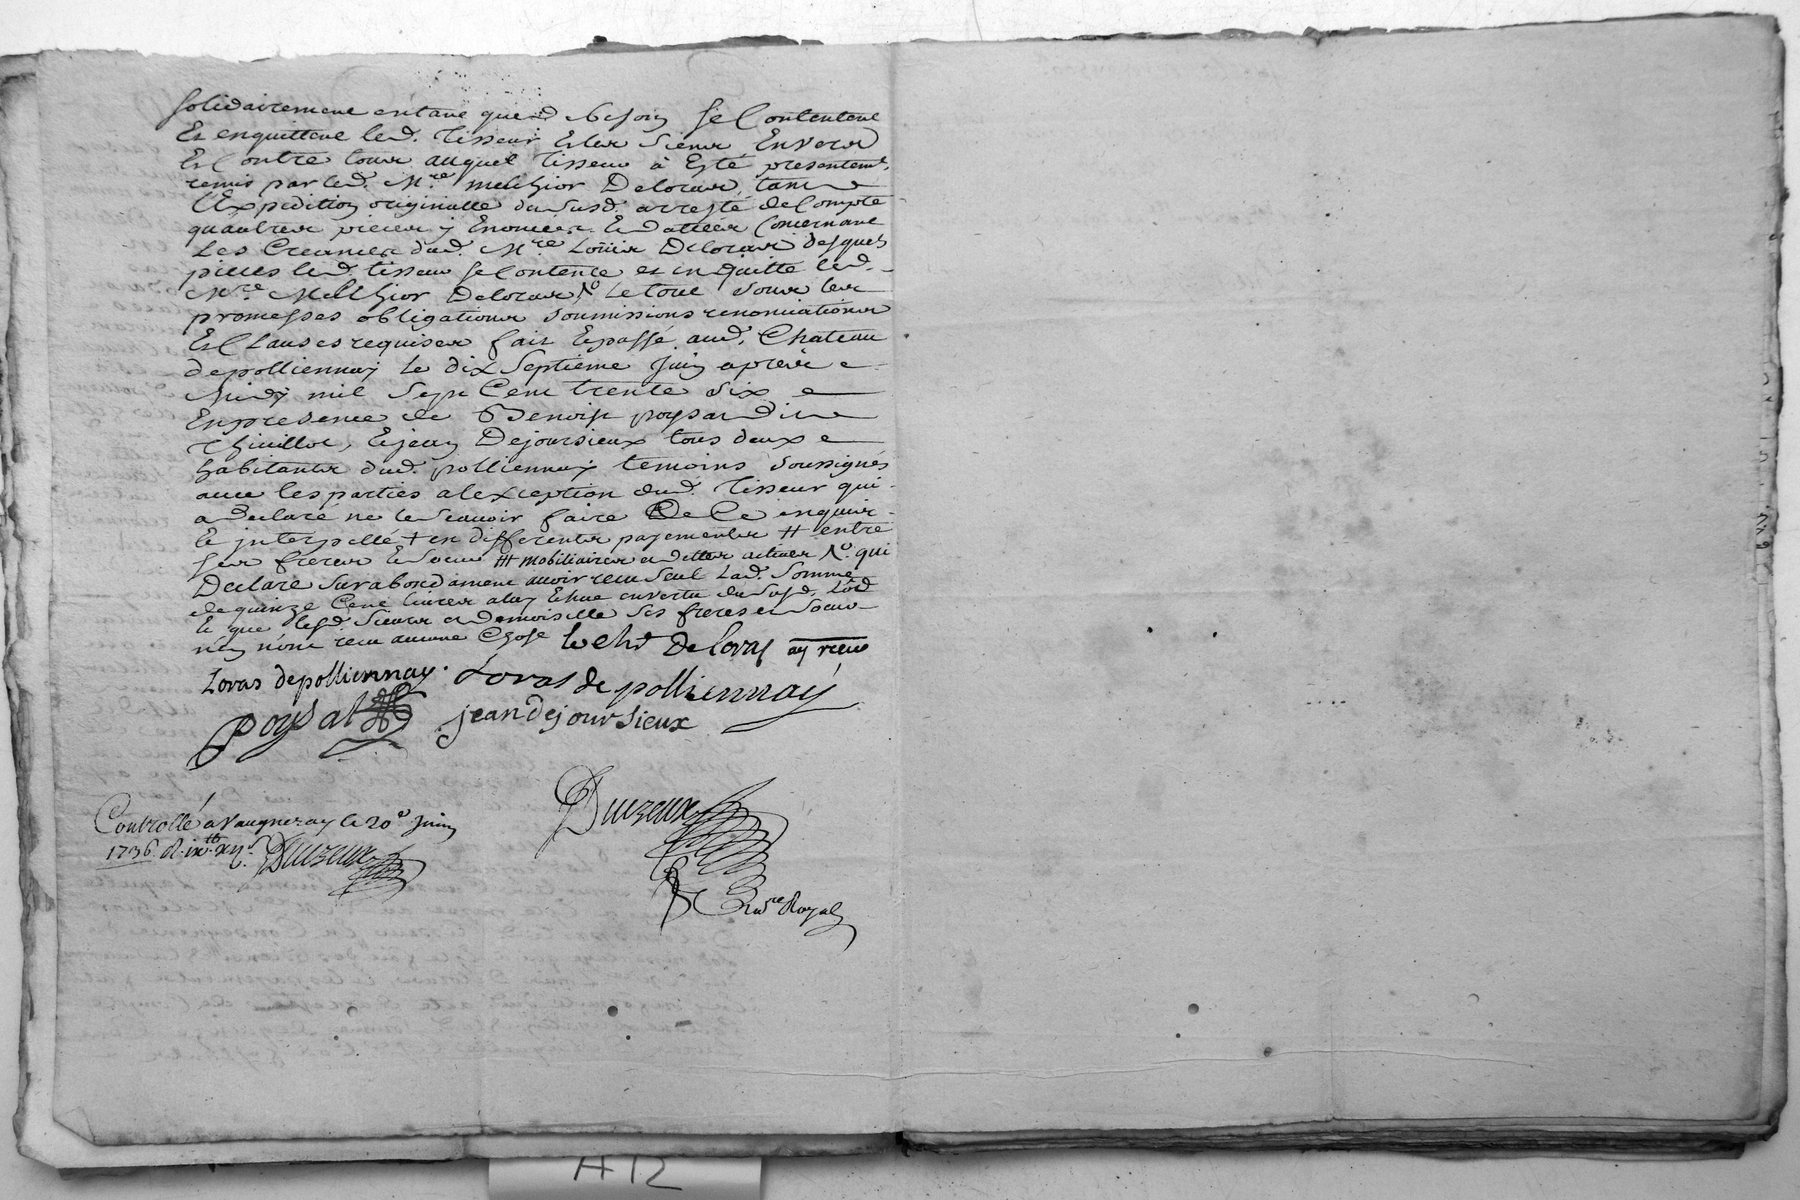 solidairement entant que d besoin se Contentent
Et enquittent led. Tisseur Et les Siens Envers
Et Contre tous auquel Tisseur à Esté presentemt.
remis par led. Mre. melchior Deloras, tant
l'Expedition originalle du susd. arresté de Compte
qu'autres pieces y Enoncées Et dattées Concernant
Les Creances dud. Mre. Loüis Deloras desquels
pieces led. tisseur se Contente et en quitte led.
Mre. Melchior Deloras, No. Le tout sous les
promesses obligations soumissions renonciations
Et Clauses requises fait Et passé aud. Chateau
de polliennay Le dix Septieme Juin après
Midy mil Sept Cent trente six
En presence de Benoist poysat dit
Thivillot, Et jean Dejoursieux tous deux
habitants dud. polliennay temoins soussignés
avec les parties a lexception dud. Tisseur qui
a declaré ne le scavoir faire De Ce enquis
et interpellé + en differents payements # entre
ses freres Et soeur ## mobiliaires et dettes actives No. qui
Declare surabondament avoir recu seul Lad. somme
de quinze Cent livres a luy Echue en vertu du susd.
et que lesd. Sieurs et demoiselle ses freres et soeur
n'en n'ont recu aucune Chose le chr De loras ay recu
Loras depolliennay. Loras de polliennaÿ
Poysat jean dejoursieux
Duizeux
Controllé a Vaugneray le 20e Juin
1736. R. Duizeux
Nore Royal
A12